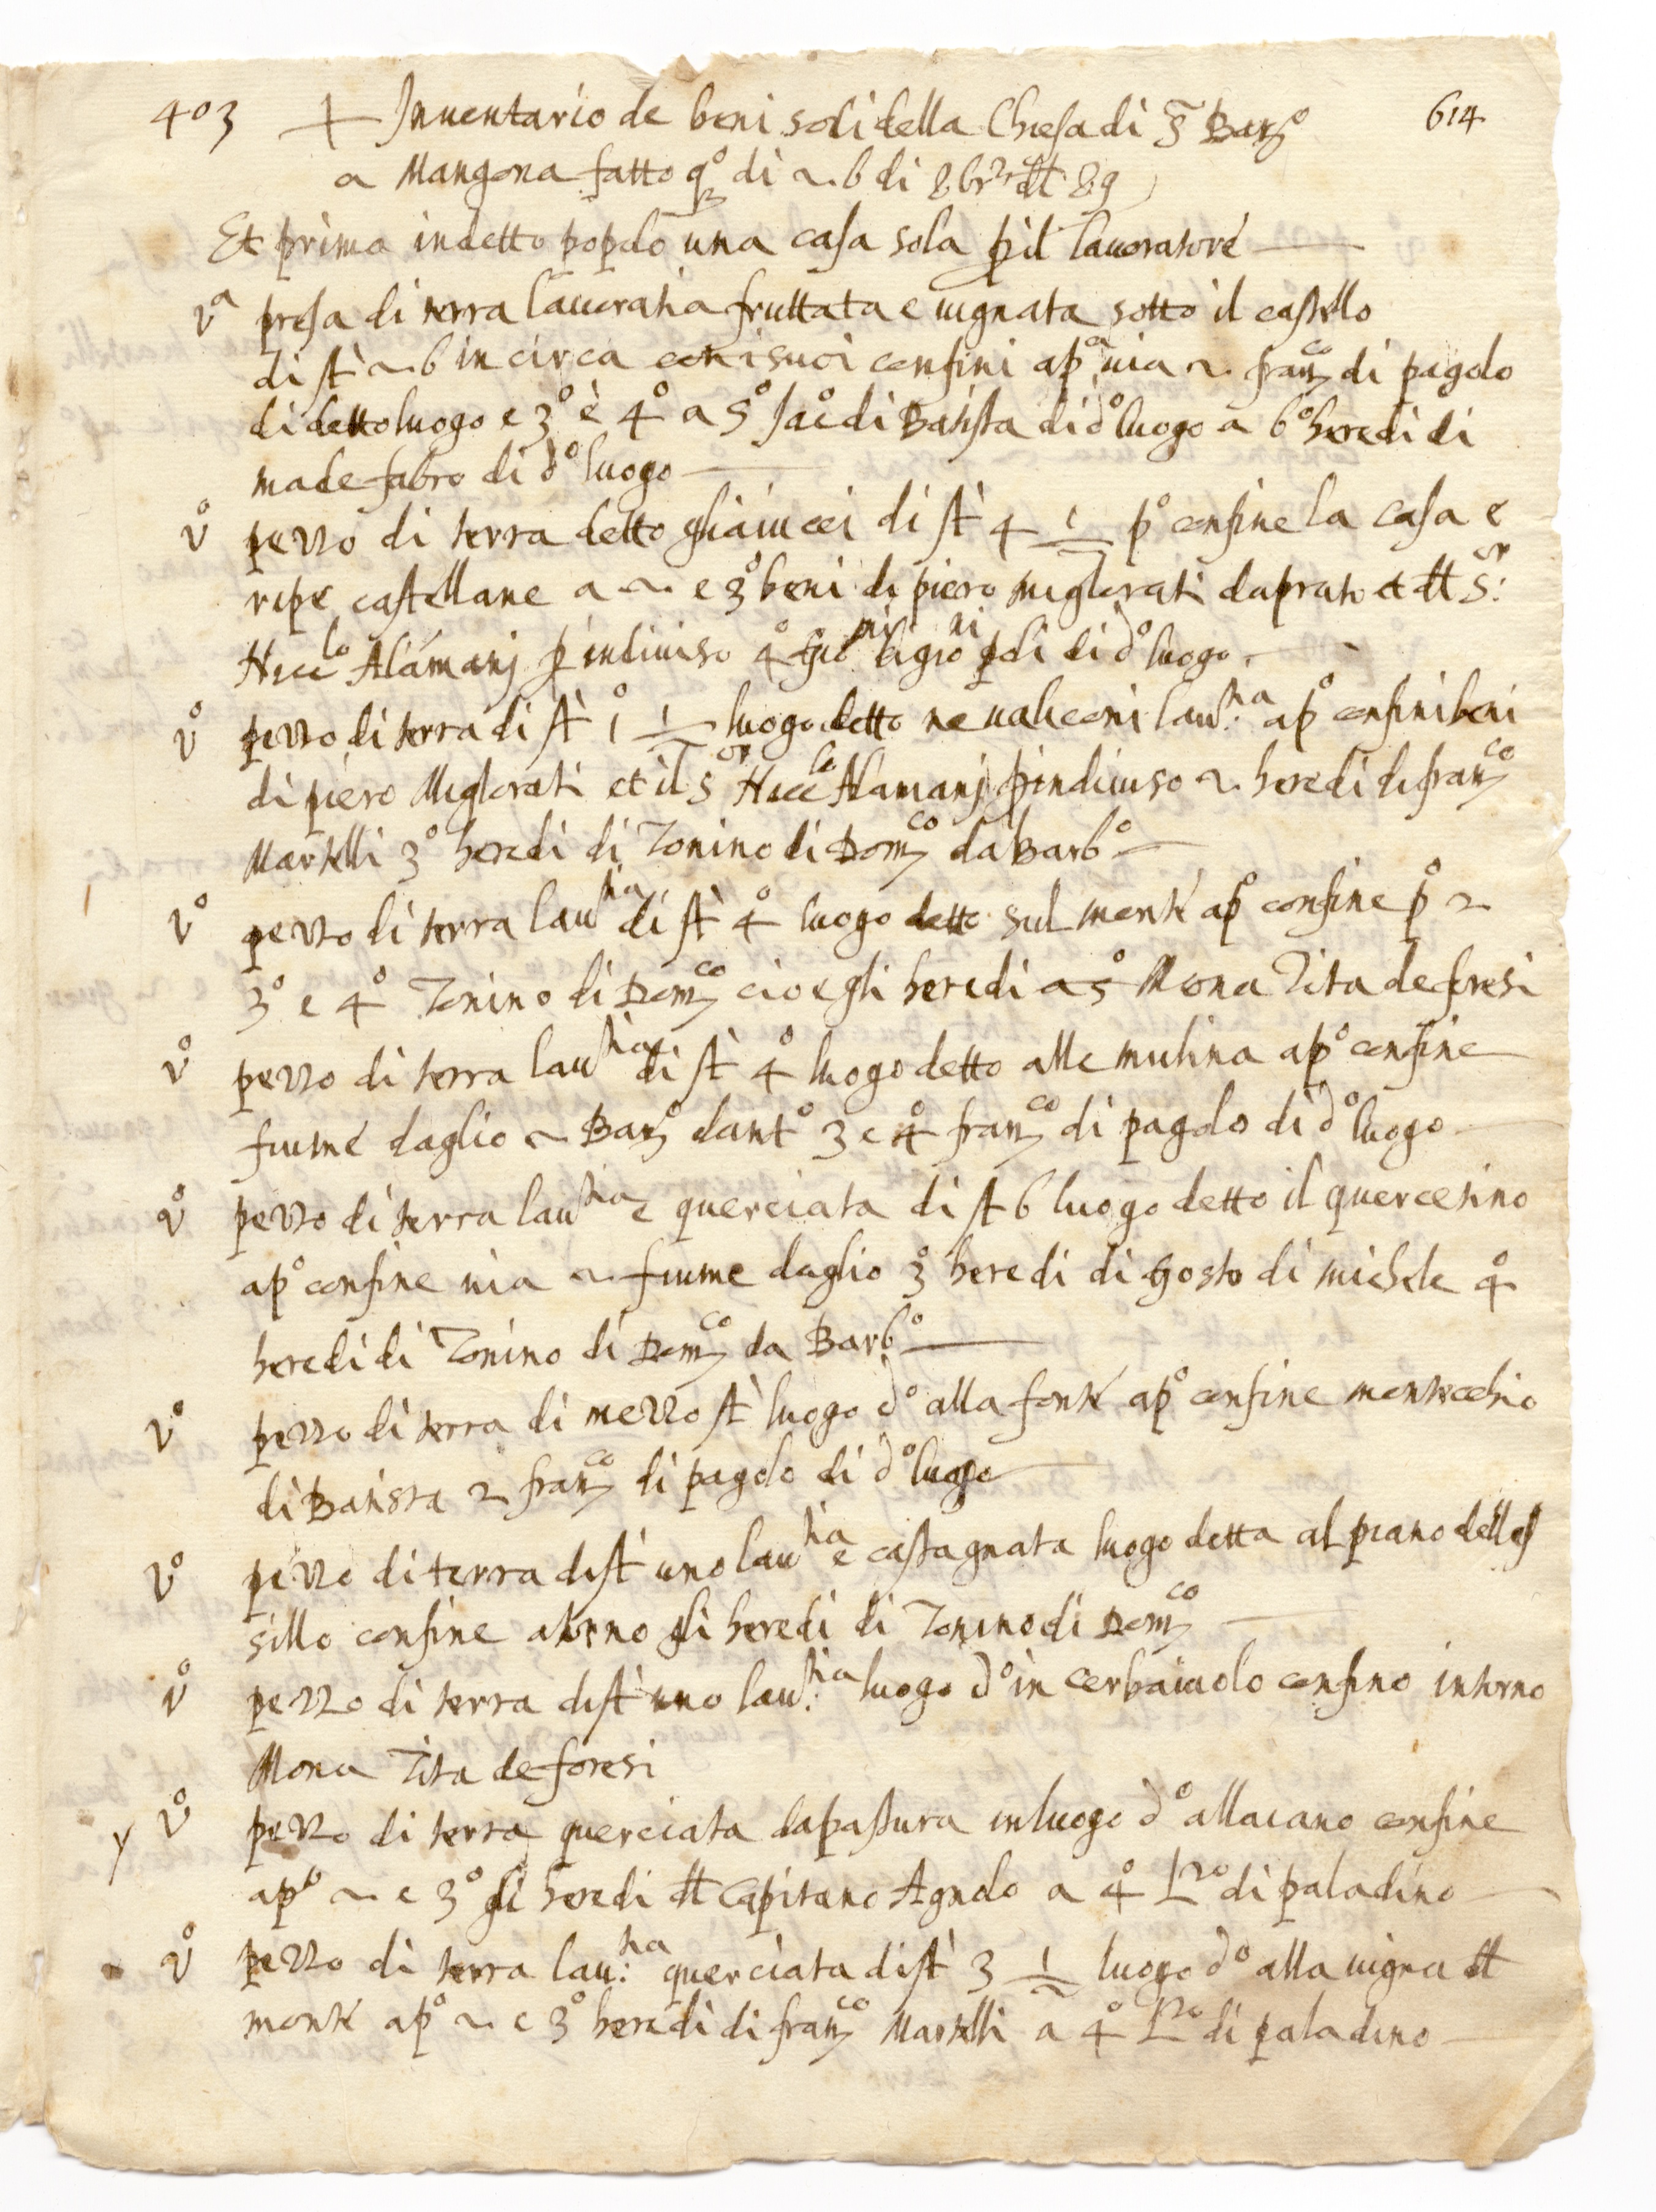 403 + Inuentario de beni sodi della Chiesa di S Bar.º 614
a Mangona fatto qº di 2 6 di 8bre dell 89
Et prima in detto popolo una casa sola p il lauoratore
vª presa di terra lauoratia fruttata e uignata sotto il castello
di st 2 6 in circa con i suoi confini apª uia 2 franco di pagolo
di detto luogo e 3º e 4º a 5º Jacº di Batista di dº luogo a 6º heredi di
ma de fabro di dº luogo
vº pezzo di terra detto di st 4 1/2 pº confine la casa e
ripe castellane a 2 e 3º beni di piero miglorati da prato et dll Sor:
Alamanj p indiuiso 4º di dº luogo
vº pezzo di terra di st 1º 1/2 luogo detto ne ualiconi lau:tia apº confini beni
di piero Miglorati et il Sor Alamanj p indiuiso 2 heredi di franco
Martelli 3º heredi di Tonino di Domco da Barbº
vº pezzo di terra lautia di st 4º luogo detto sul monte apº confine pº 2
3º e 4º Tonino di Domco cioe gli heredi a 5º Mona Tita de foresi
vº pezzo di terra lautia di st 4º luogo detto alle mulina apº confine
fiume daglio 2 Barº dantº 3 e 4º franco di pagolo di dº luogo
vº pezzo di terra lautia e querciata di st 6 luogo detto il quercetino
apº confine uia 2 fiume daglio 3º heredi di Gosto di michele 4º
heredi di Tonino di Domco da Barbº
vº pezzo di terra di mezzo st luogo dº alla fonte apº confine montecchio
di Batista 2 franco di pagolo di dº luogo
vº pezzo di terra di st uno lautia e castagnata luogo detta al piano
sillo confine atorno gli heredi di Tonino di Domco
vº pezzo di terra di st uno lau:tia luogo dº in cerbaiuolo confino intorno
Mona Tita de foresi
y vº pezzo di terra querciata da pastura in luogo dº confine
apº 2 e 3º gli heredi dll Capitano Agnolo a 4º Lzo di paladino
vº pezzo di terra lau:tia querciata di st 3 1/2 luogo dº alla uigna dll
monte apº 2 e 3º heredi di franco Martelli a 4º Lzo di paladino